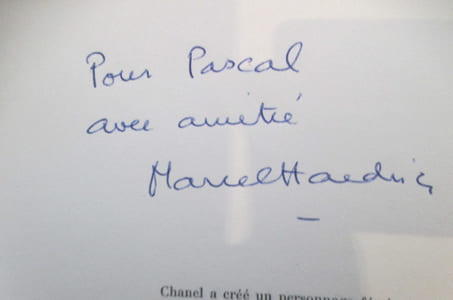 Pour Pascal
avec amitié
Marcel Haedrich
Chanel a créé un personnage